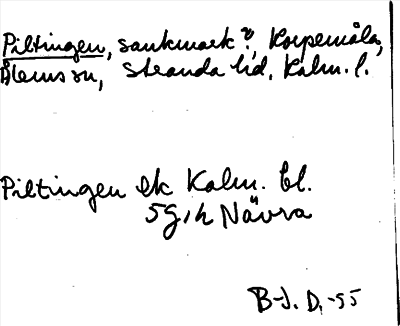 Piltingen, sankmark?, Korpemåla,
Ålems sn, Stranda hd, Kalm. l.
Piltingen ek Kalm. bl.
5G, h Nävra
B-J. D. -55